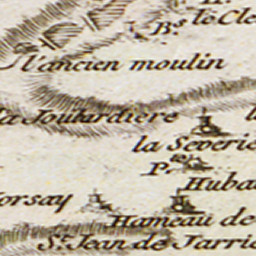 le Cle
Bs.
l'ancien moulin
la Jouardière
la Severie
Pte.
Huba
orsay
Hameau de
St. Jean de Jarrie